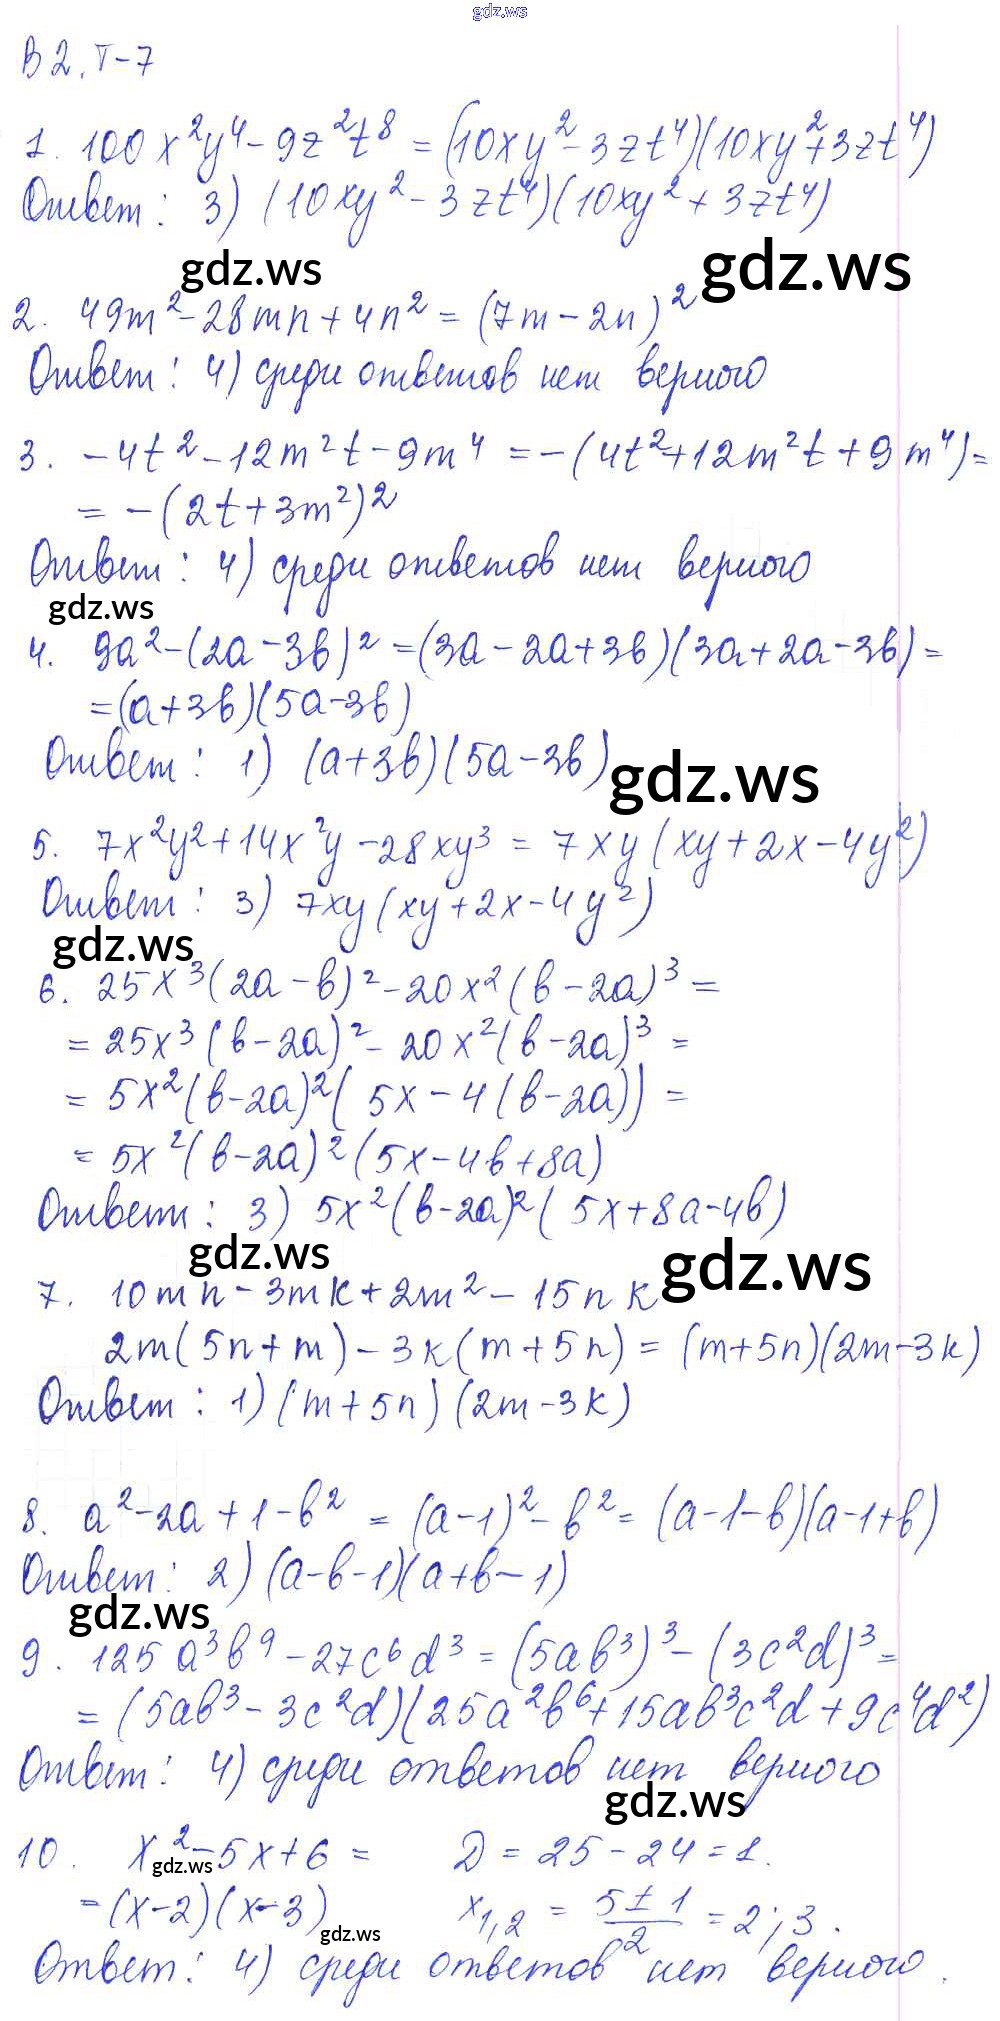 gdz.ws
В2. Т-7
1. 100x²y⁴ - 9z²t⁸ = (10xy² - 3zt⁴)(10xy² + 3zt⁴)
Ответ: 3) (10xy² - 3zt⁴)(10xy² + 3zt⁴)
gdz.ws gdz.ws
2. 49m² - 28mn + 4n² = (7m - 2n)²
Ответ: 4) среди ответов нет верного
3. -4t² - 12m²t - 9m⁴ = -(4t² + 12m²t + 9m⁴) =
= -(2t + 3m²)²
Ответ: 4) среди ответов нет верного
gdz.ws
4. 9a² - (2a - 3b)² = (3a - 2a + 3b)(3a + 2a - 3b) =
= (a + 3b)(5a - 3b)
Ответ: 1) (a + 3b)(5a - 3b)
gdz.ws
5. 7x²y² + 14x²y - 28xy³ = 7xy(xy + 2x - 4y²)
Ответ: 3) 7xy(xy + 2x - 4y²)
gdz.ws
6. 25x³(2a - b)² - 20x²(b - 2a)³ =
= 25x³(b - 2a)² - 20x²(b - 2a)³ =
= 5x²(b - 2a)²(5x - 4(b - 2a)) =
= 5x²(b - 2a)²(5x - 4b + 8a)
Ответ: 3) 5x²(b - 2a)²(5x + 8a - 4b)
gdz.ws gdz.ws
7. 10mn - 3mk + 2m² - 15nk
2m(5n + m) - 3k(m + 5n) = (m + 5n)(2m - 3k)
Ответ: 1) (m + 5n)(2m - 3k)
8. a² - 2a + 1 - b² = (a - 1)² - b² = (a - 1 - b)(a - 1 + b)
Ответ: 2) (a - b - 1)(a + b - 1)
gdz.ws
9. 125a³b⁹ - 27c⁶d³ = (5ab³)³ - (3c²d)³ =
= (5ab³ - 3c²d)(25a²b⁶ + 15ab³c²d + 9c⁴d²)
Ответ: 4) среди ответов нет верного
gdz.ws
10. x² - 5x + 6 = D = 25 - 24 = 1.
gdz.ws
= (x - 2)(x - 3) x₁,₂ = (5 ± 1)/2 = 2; 3.
gdz.ws
Ответ: 4) среди ответов нет верного.